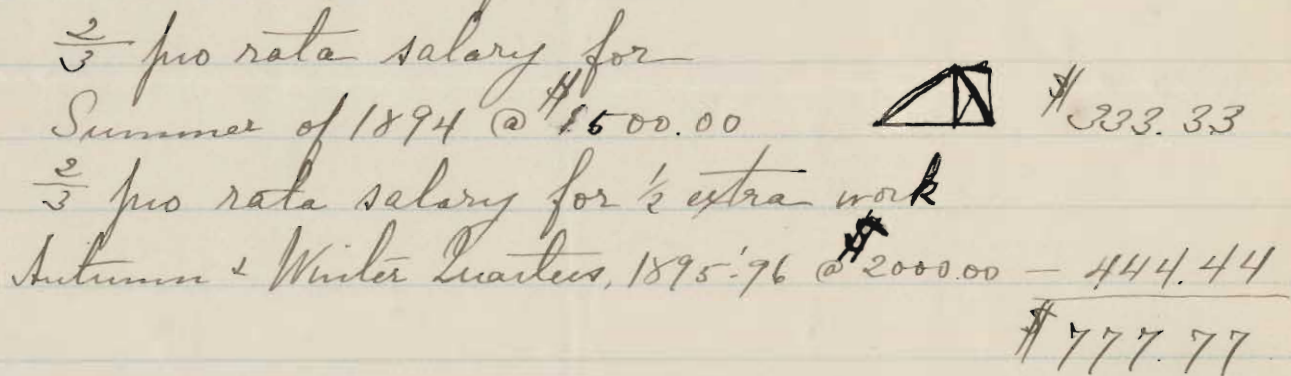 2/3 pro rata salary for
Summer of 1894 @ $1500.00 $333.33
2/3 pro rata salary for 1/2 extra work
Autumn & Winter Quarters, 1895-'96 @ $2000.00 — 444.44
$777.77